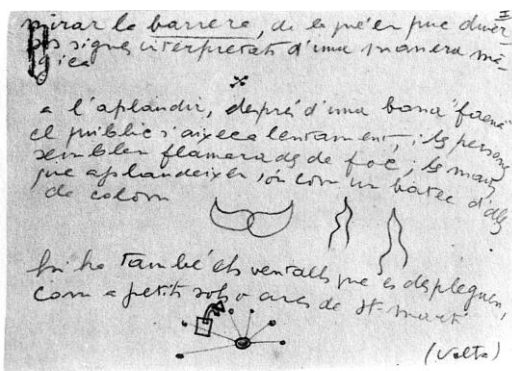 I
mirar la barrera, de la qué'n puc diver-
sos signes interpretats d'una manera mà-
gica
a l'aplaudir, després d'una bona "faena"
el públic s'aixeca lentament, i les persones
semblen flamarades de foc; les mans
que aplaudeixen, són com un batec d'ales
de colom
hi ha també els ventalls que es despleguen,
com a petits sols o arcs de St. Martí
(Volta)